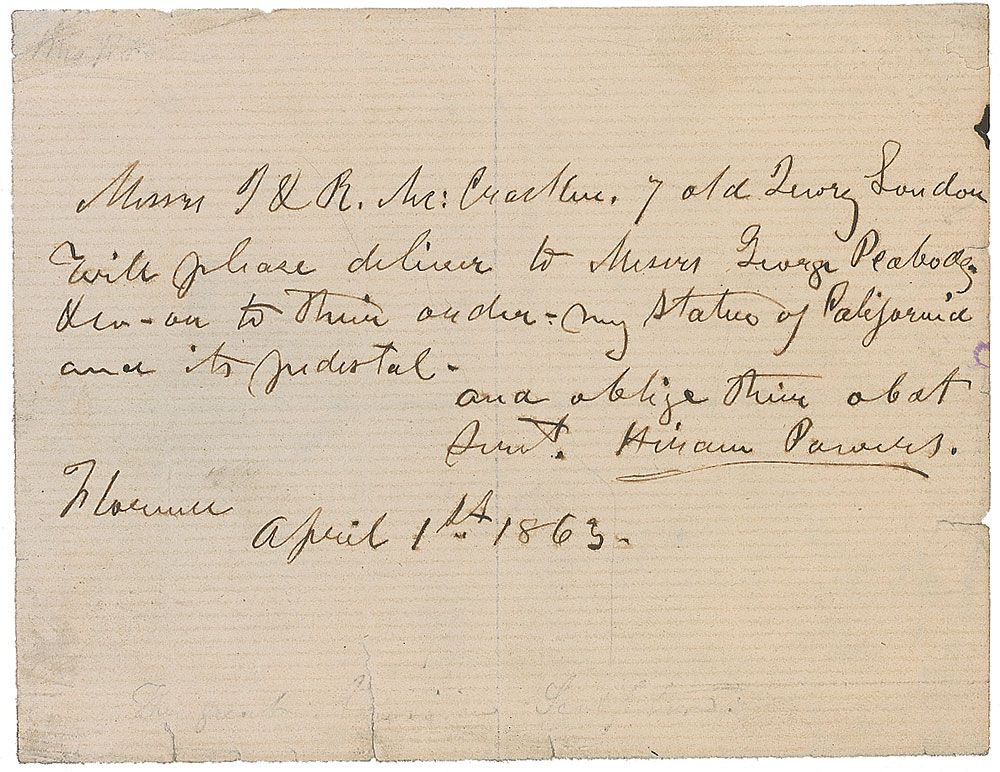 Messrs J & R. Mc: Cracken. 7 old Jewry London
Will please deliver to Messrs George Peabody
&co - or to their order - my Statue of California
and its pedestal -
and oblige their obdt
Servt. Hiram Powers.
Florence
April 1st. 1863.
The great